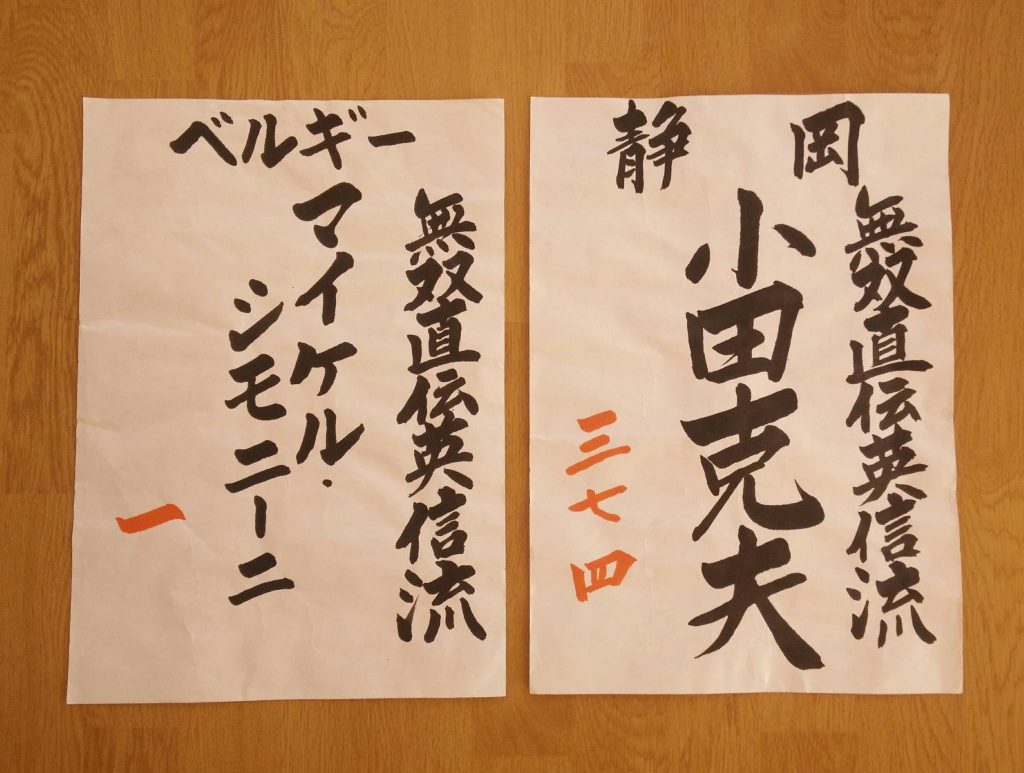 ベルギー
無双直伝英信流
マイケル・
シモニーニ
一
静岡
無双直伝英信流
小田克夫
三七四